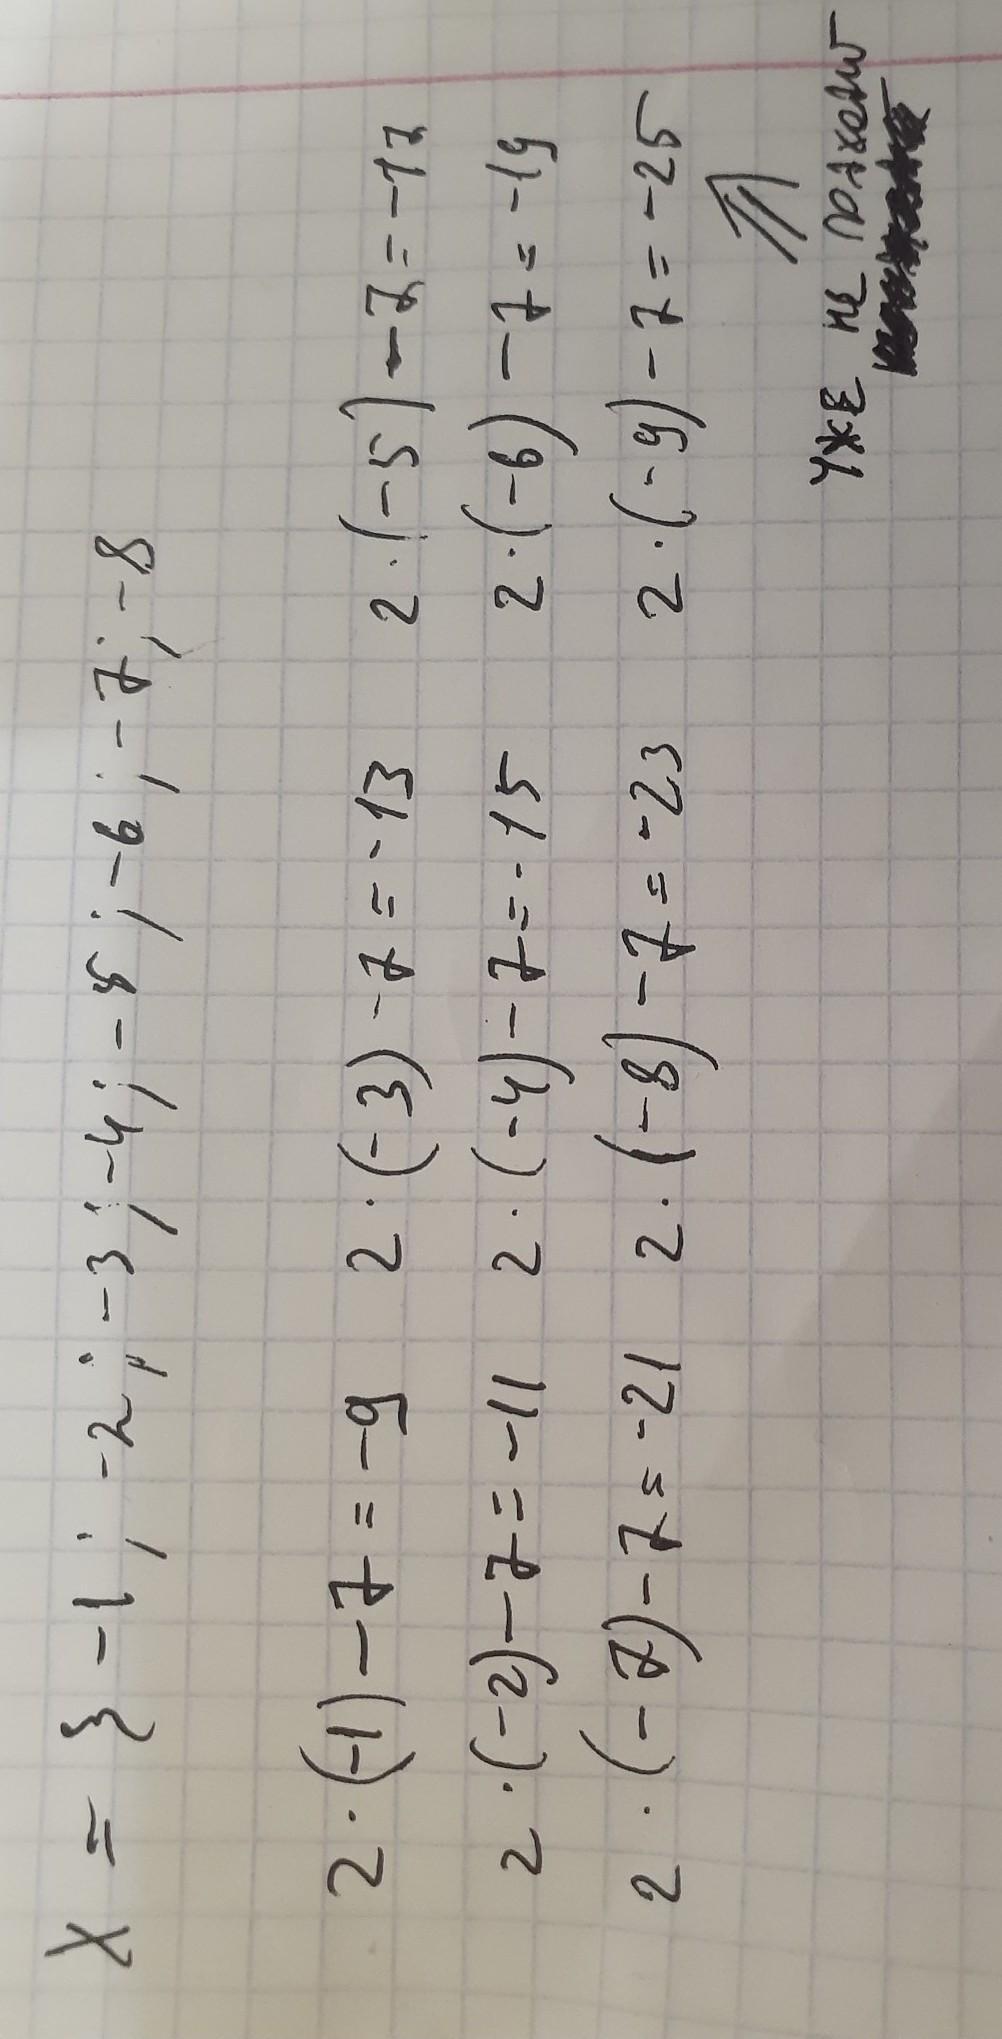 X = { -1 ; -2 ; -3 ; -4 ; -5 ; -6 ; -7 ; -8
2 · (-1) - 7 = -9 2 · (-3) - 7 = -13 2 · (-5) - 7 = -17
2 · (-2) - 7 = -11 2 · (-4) - 7 = -15 2 · (-6) - 7 = -19
2 · (-7) - 7 = -21 2 · (-8) - 7 = -23 2 · (-9) - 7 = -25
уже не подходит